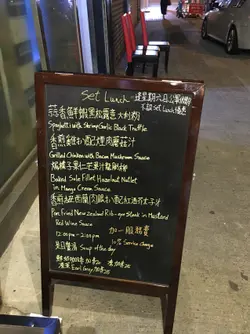 Set Lunch 逢星期六日公眾假期
不設 Set Lunch 優惠
蒜香鮮蝦黑松露意大利粉
Spaghetti with Shrimp Garlic Black Truffle
香煎雞扒配煙肉蘑菇汁
Grilled Chicken with Bacon Mushroom Sauce
焗龍子果仁芒果汁
Baked Sole Fillet Hazelnut Nutlet
in Mango Cream Sauce
香煎紐西蘭肉眼扒配紅酒芥末子汁
Pan Fried New Zealand Rib-eye Steak in Mustard
Red Wine Sauce
12:00p.m-2:30p.m 加一服務費
10% Service charge
是日餐湯 Soup of the day